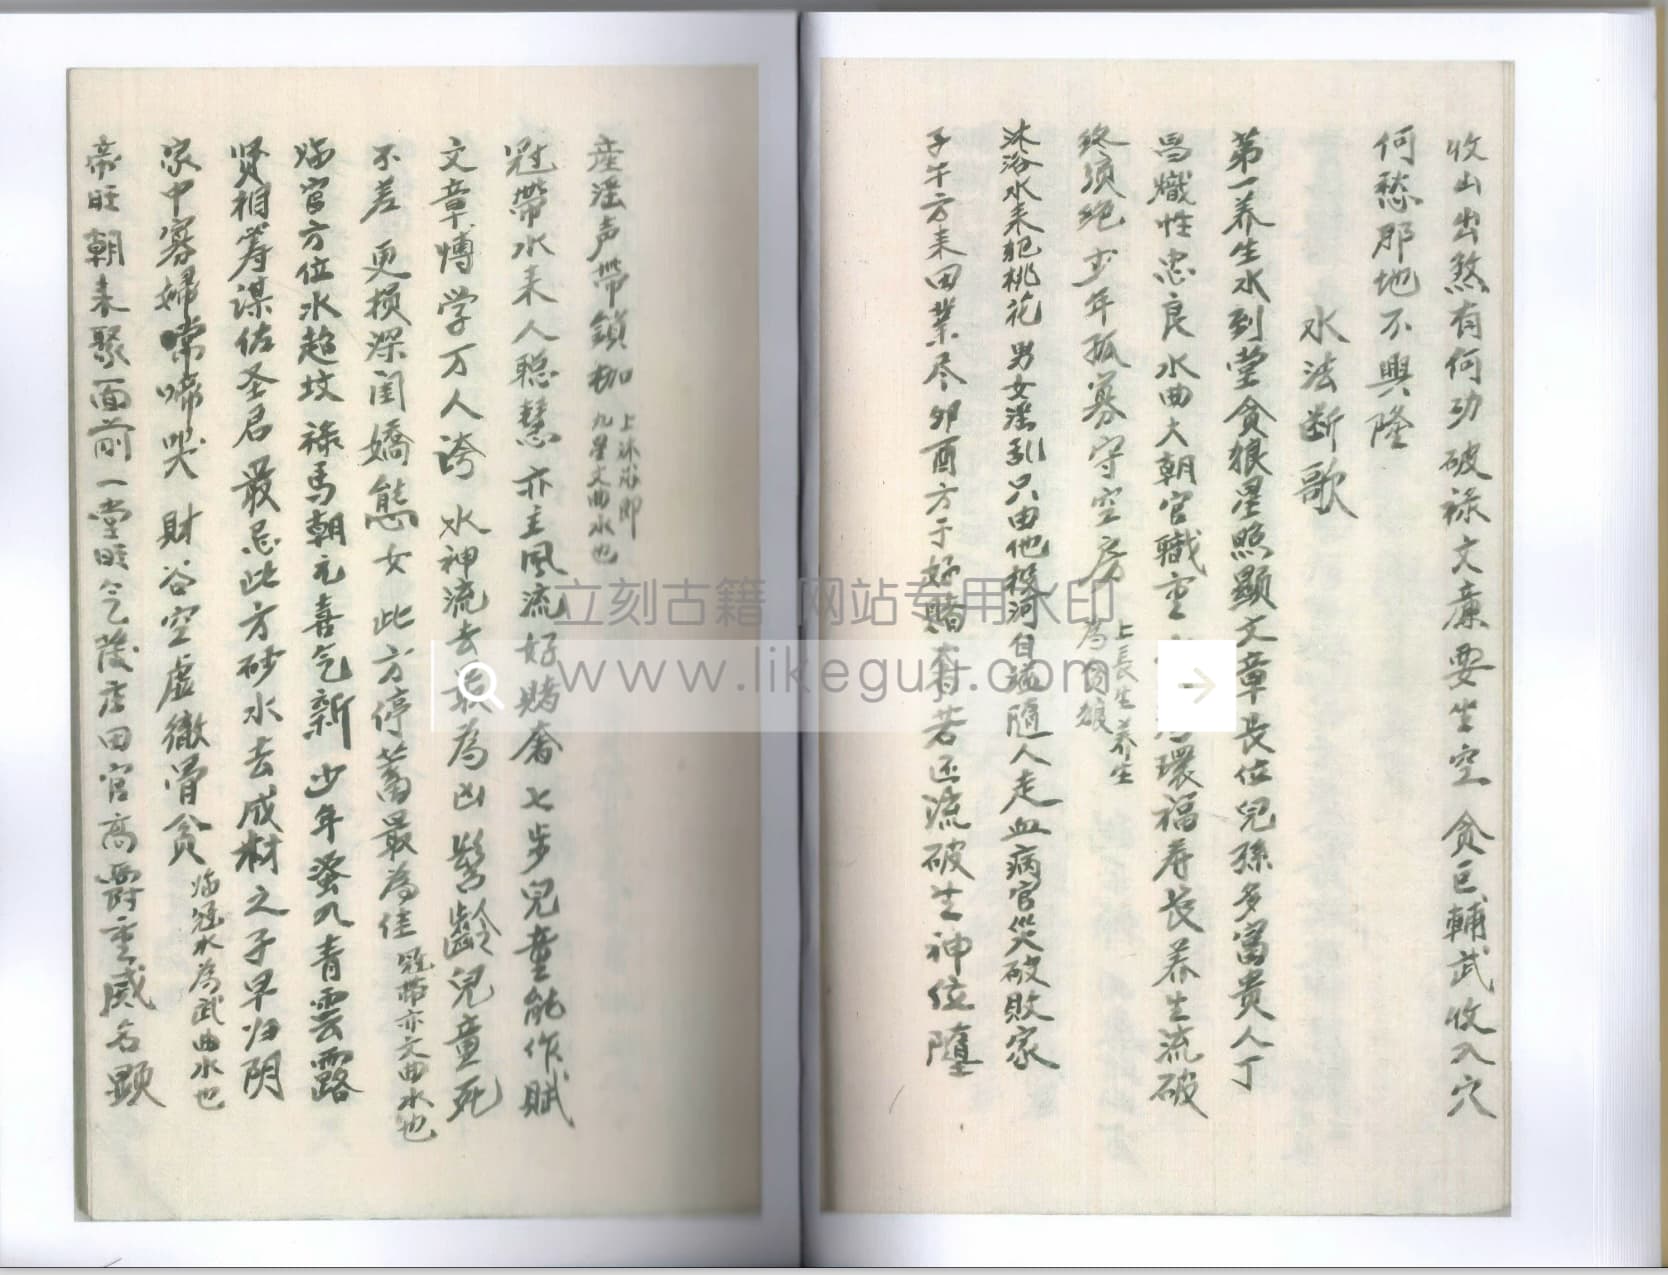 收山出煞有何功破祿文廉要生空貪巨輔武收入穴
何愁那地不興隆
水法断歌
第一养生水到堂貪狼星照顯文章長位兒孫多富貴人丁
昌熾性忠良水曲大朝官職重環福寿長养生流破
終須絕少年孤寡守空房
上長生养生
為貪狼
沐浴水来犯桃花男女淫乱只由他投河自縊隨人走血病官災破敗家
子午方来田業尽卯酉方于好賭奢若还流破生神位隨
産淫声带鎖枷
上沐浴即
九星文曲水也
冠帶水来人聪慧亦主風流好賭奢七步兒童能作賦
文章博学万人誇水神流去最為凶髫齡兒童死
不差更损深闺嬌態女此方停蓄最為佳
冠带亦文曲水也
临官方位水超坟祿馬朝元喜气新少年滚入青雲露
贤相筹谋佐圣君最忌此方砂水去成材之子早归阴
家中寡婦常啼哭財谷空虛徹骨贫
临冠水為武曲水也
帝旺朝来聚面前一堂旺气发庄田官高爵重威名顕
立刻古籍 网站专用水印
www.likeguji.com